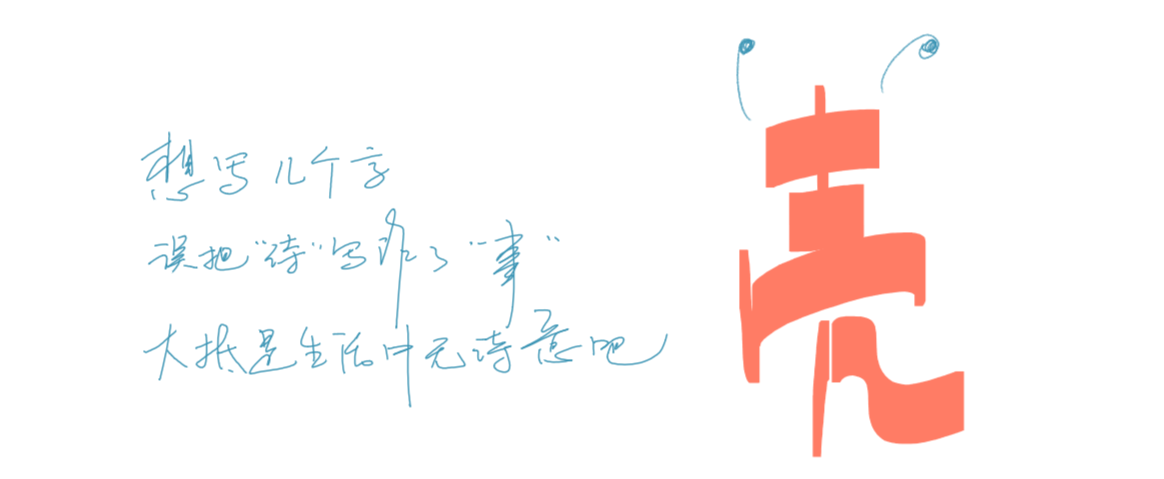 想写几个字
误把“诗”写了“事”
大抵是生活中无诗意吧
壳